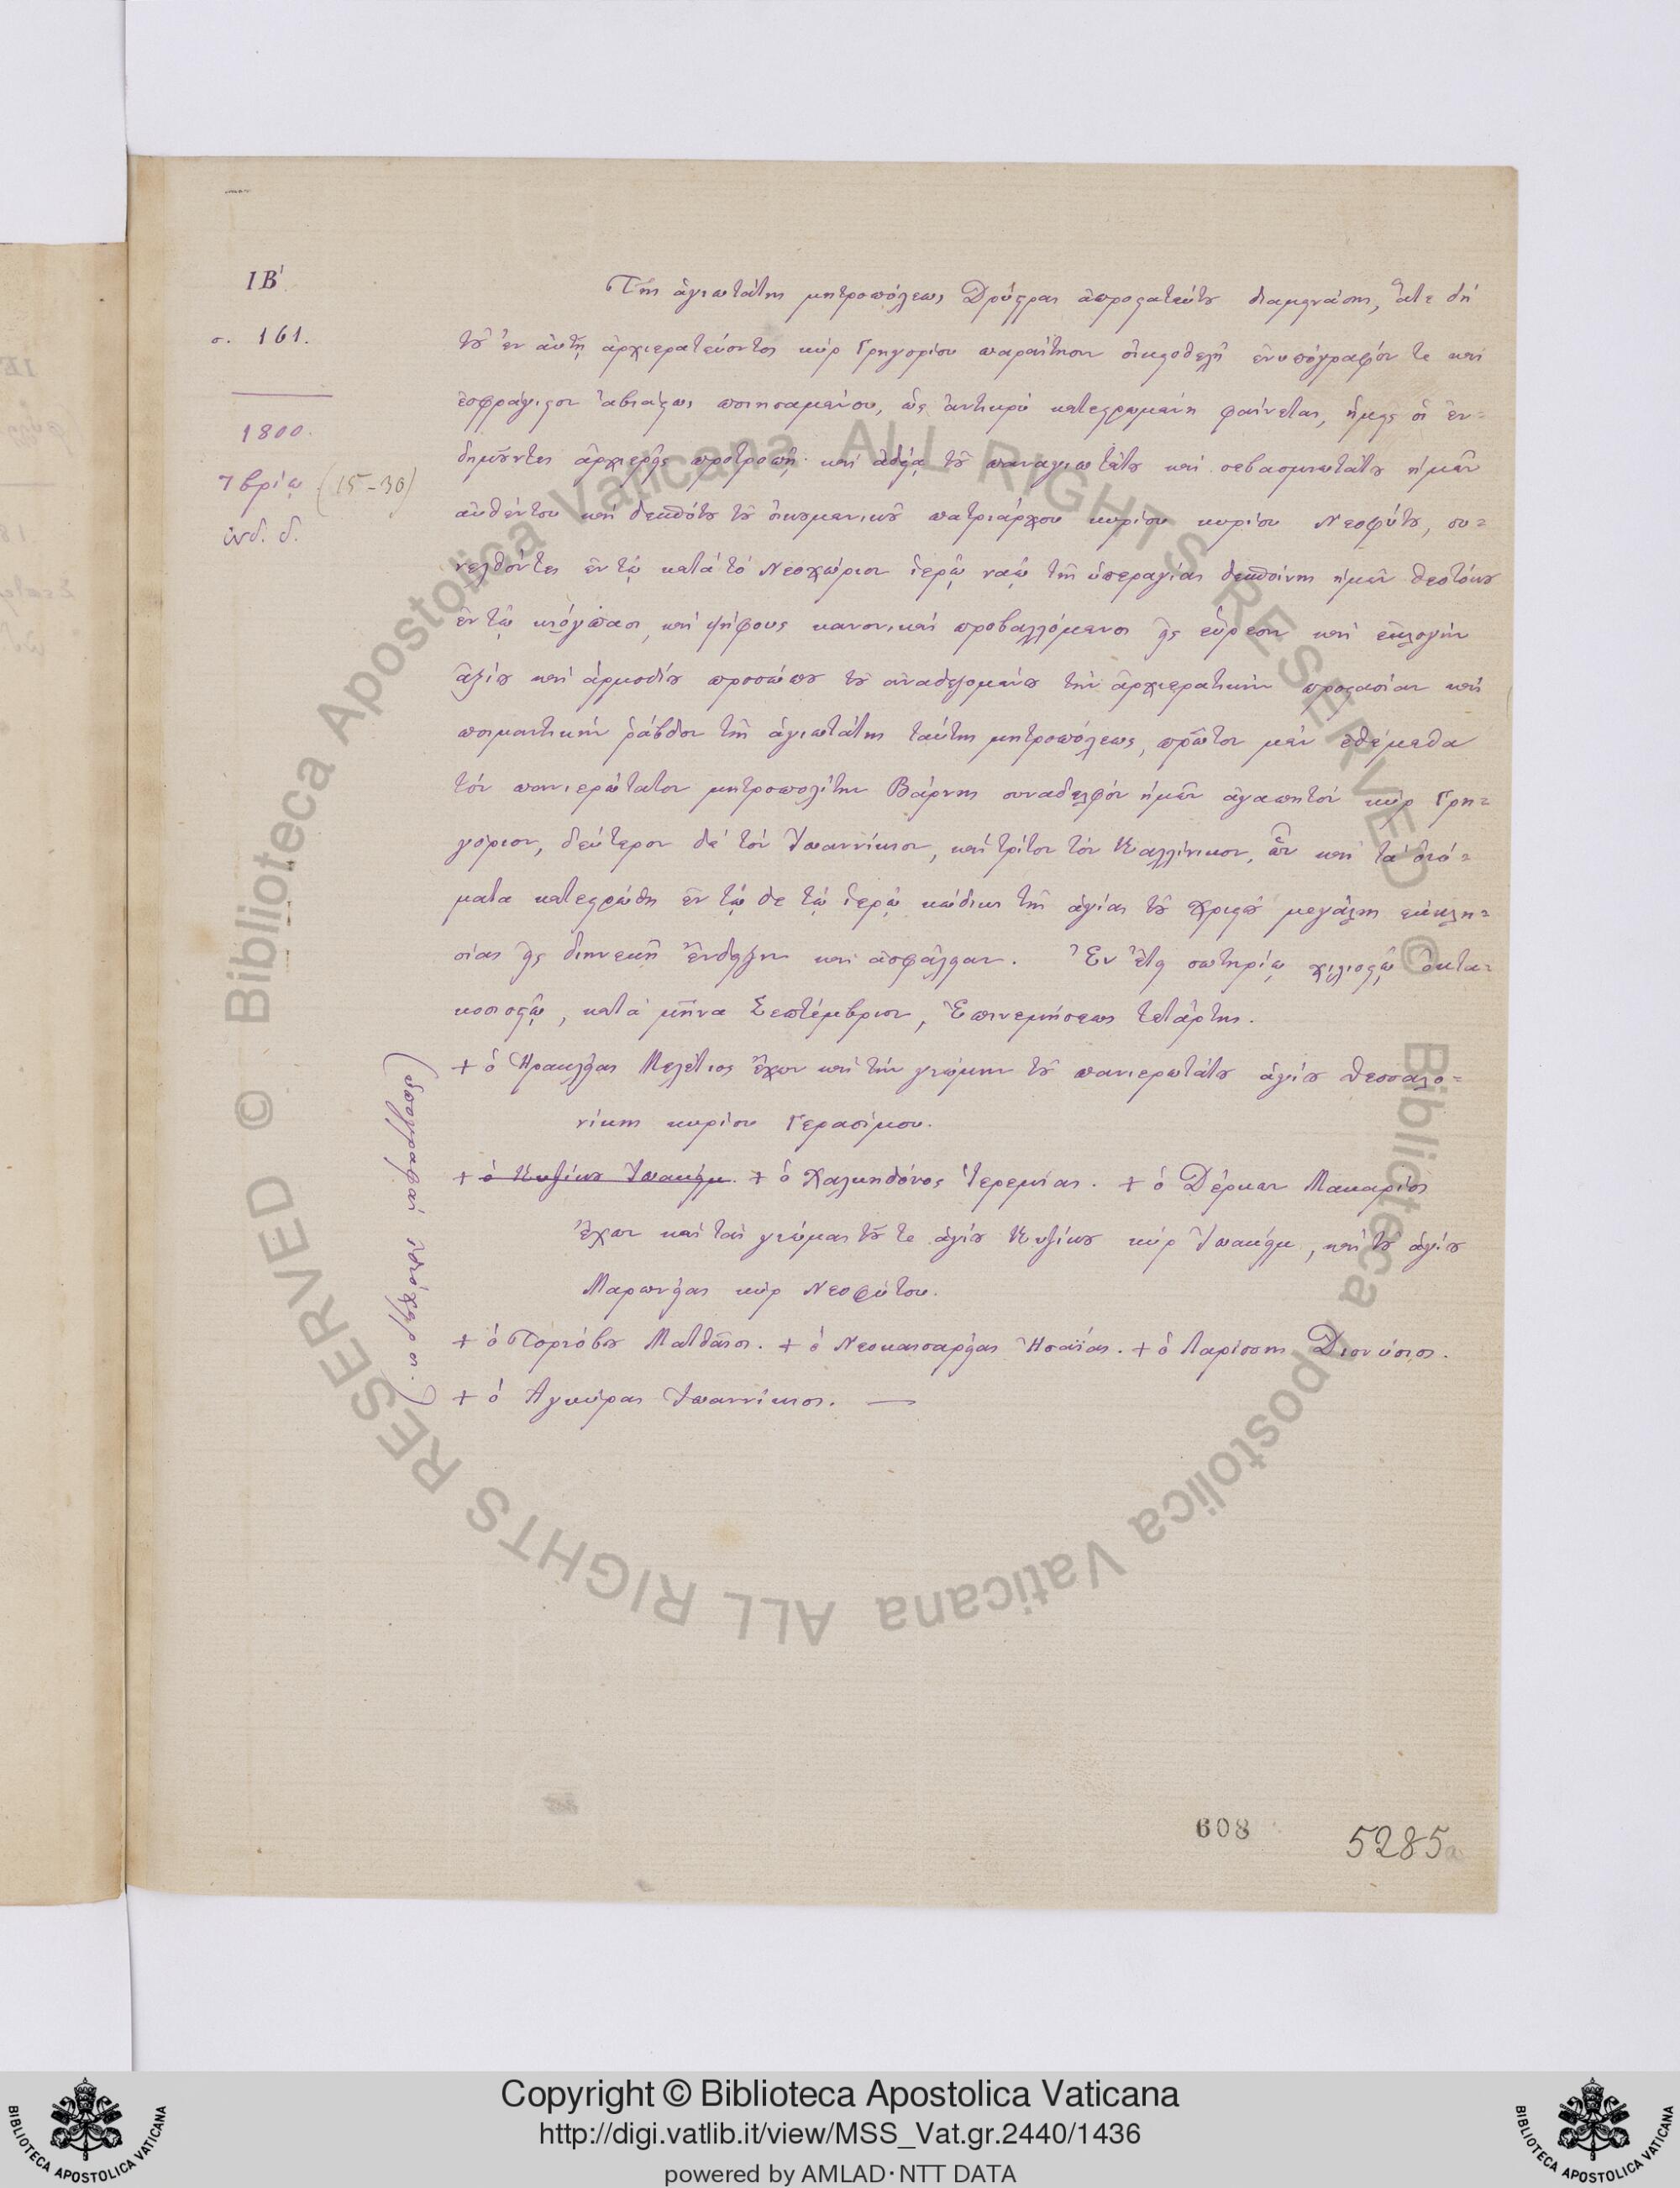 ΙΒ'
σ. 161.
1800.
7βρίῳ (15-30)
ἰνδ. δ.
Τῆς ἁγιωτάτης μητροπόλεως Δρύστρας ἀπροστατεύτου διαμεινάσης, ἅτε δὴ
τοῦ ἐν αὐτῇ ἀρχιερατεύοντος κὺρ Γρηγορίου παραίτησιν οἰκειοθελῆ ἐνυπόγραφόν τε καὶ
ἐσφράγιστον ἀβιάστως ποιησαμένου, ὡς ἀντικρὺ κατεστρωμένη φαίνεται, ἡμεῖς οἱ ἐν-
δημοῦντες ἀρχιερεῖς προτροπῇ καὶ ἀδείᾳ τοῦ παναγιωτάτου καὶ σεβασμιωτάτου ἡμῶν
αὐθέντου καὶ δεσπότου τοῦ οἰκουμενικοῦ πατριάρχου κυρίου κυρίου Νεοφύτου, συ-
νελθόντες ἐν τῷ κατὰ τὸ Νεοχώριον ἱερῷ ναῷ τῆς ὑπεραγίας δεσποίνης ἡμῶν Θεοτόκου
ἐν τῷ κιόγπασι, καὶ ψήφους κανονικὰς προβαλλόμενοι εἰς εὕρεσιν καὶ ἐκλογὴν
ἀξίου καὶ ἁρμοδίου προσώπου τοῦ ἀναδεξομένου τὴν ἀρχιερατικὴν προστασίαν καὶ
ποιμαντικὴν ῥάβδον τῆς ἁγιωτάτης ταύτης μητροπόλεως, πρῶτον μὲν ἐθέμεθα
τὸν πανιερώτατον μητροπολίτην Βάρνης συναδελφὸν ἡμῶν ἀγαπητὸν κὺρ Γρη-
γόριον, δεύτερον δὲ τὸν Ἰωαννίκιον, καὶ τρίτον τὸν Καλλίνικον, ὧν καὶ τὰ ὀνό-
ματα κατεστρώθη ἐν τῷδε τῷ ἱερῷ κώδικι τῆς ἁγίας τοῦ Χριστοῦ μεγάλης ἐκκλη-
σίας εἰς διηνεκῆ ἔνδειξιν καὶ ἀσφάλειαν. Ἐν ἔτει σωτηρίῳ χιλιοστῷ ὀκτα-
κοσιοστῷ, κατὰ μῆνα Σεπτέμβριον, Ἐπινεμήσεως τετάρτης.
+ ὁ Ἡρακλείας Μελέτιος ἔχων καὶ τὴν γνώμην τοῦ πανιερωτάτου ἁγίου Θεσσαλο-
νίκης κυρίου Γερασίμου.
+ ὁ Κυζίκου Ἰωακείμ. + ὁ Χαλκηδόνος Ἱερεμίας. + ὁ Δέρκων Μακάριος
ἔχων καὶ τὰς γνώμας τοῦ τε ἁγίου Κυζίκου κὺρ Ἰωακείμ, καὶ τοῦ ἁγίου
Μαρωνείας κὺρ Νεοφύτου.
+ ὁ Τορνόβου Ματθαῖος. + ὁ Νεοκαισαρείας Ἡσαΐας. + ὁ Λαρίσσης Διονύσιος.
+ ὁ Ἀγκύρας Ἰωαννίκιος. —
608
5285a
Copyright © Biblioteca Apostolica Vaticana
http://digi.vatlib.it/view/MSS_Vat.gr.2440/1436
powered by AMLAD・NTT DATA
BIBLIOTECA APOSTOLICA VATICANA
BIBLIOTECA APOSTOLICA VATICANA
© Biblioteca Apostolica Vaticana ALL RIGHTS RESERVED © Biblioteca Apostolica Vaticana ALL RIGHTS RESERVED